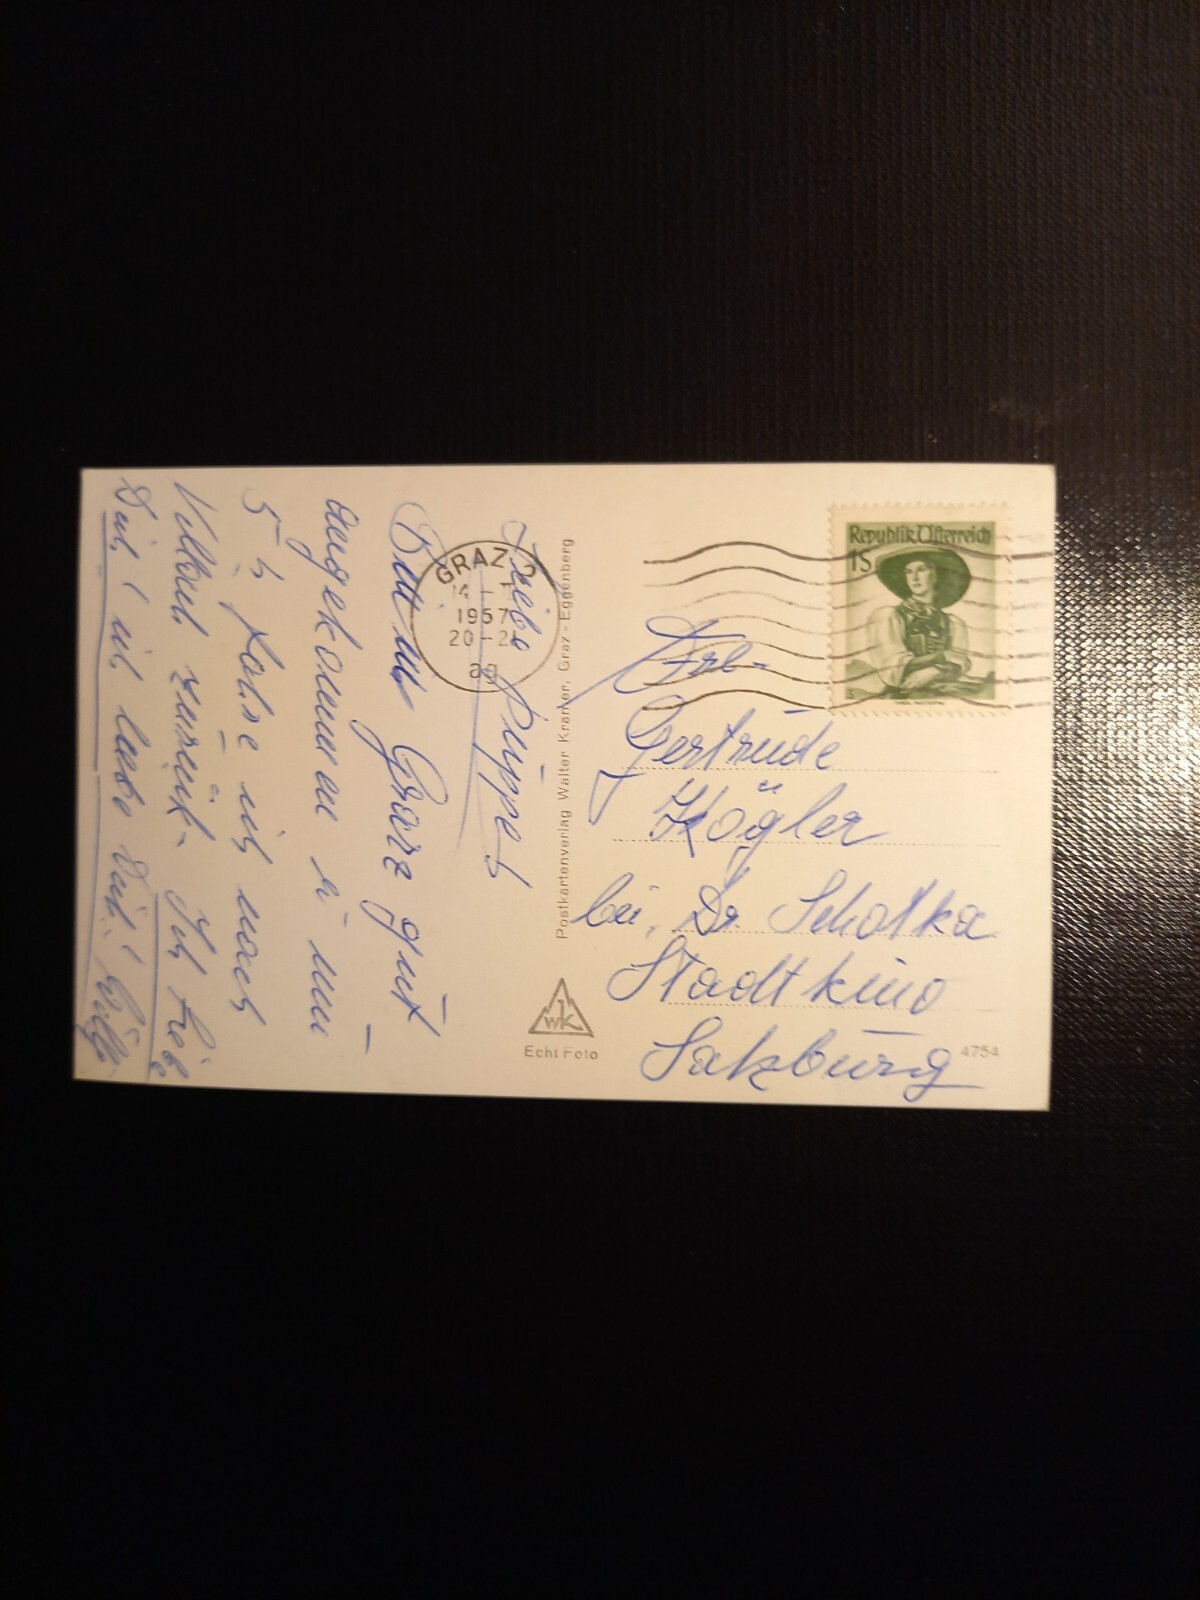 Liebe Puppe!
Bin in Graz gut
angekommen u. um
5 h fahre ich nach
Villach zurück. Ich liebe
Dich! ich liebe Dich!
GRAZ 2
1957
20-21
ag
Postkartenverlag Walter Kramer, Graz-Eggenberg
WK
Echt Foto
Republik Österreich
1S
Frl.
Gertrude
Kögler
bei Dr. Schotka
Stadtkino
Salzburg
4754